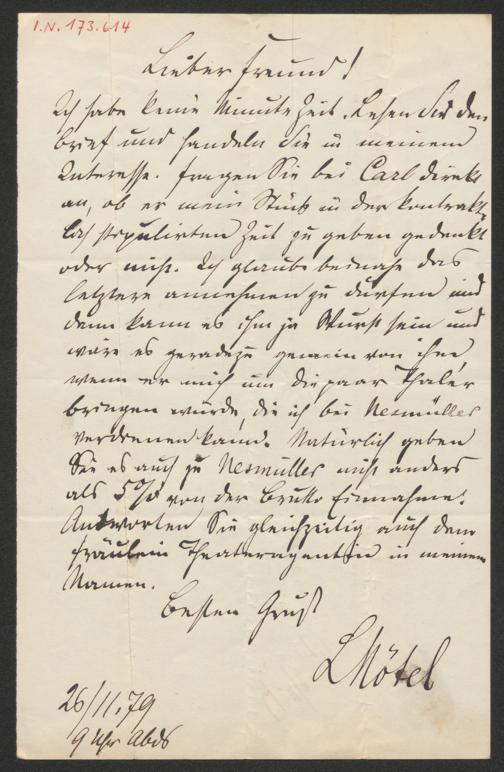 I.N. 173.614
Lieber Freund!
Ich habe keine Minute Zeit. Lesen Sie den
Brief und handeln Sie in meinem
Interesse. Fragen Sie bei Carl direkt
an, ob er mein Stück in der kontrakt-
lich stipulirten Zeit zu geben gedenkt
oder nicht. Ich glaube beinahe das
letztere annehmen zu dürfen und
dann kann es ihm ja Wurst sein und
wäre es geradezu gemein von ihm,
wenn er mich um die paar Thaler
bringen würde, die ich bei Nesmüller
verdienen kann. Natürlich geben
Sie es auch zu Nesmüller nicht anders
als 5% von der Brutto Einnahme.
Antworten Sie gleichzeitig auch dem
Fräulein Theateragentin in meinem
Namen.
Besten Gruß
LKötel
26/11.79
9 Uhr Abds